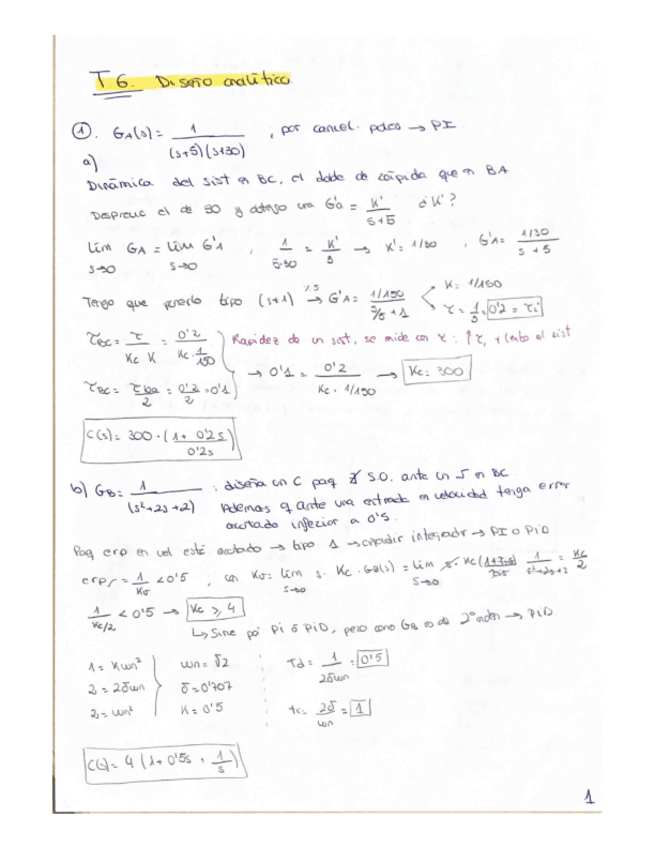 T 6. Diseño analítico.
①. GA(s) = 1/((s+5)(s+30)) ; por cancel. polos → PI
a)
Dinámica del sist en BC, el doble de rápida que en BA
Desprecio el de 30 y obtengo una G'a = K'/(s+5) ¿K'?
lím GA = lím G'A , 1/(5·30) = K'/5 → K' = 1/30 , G'A = (1/30)/(s+5)
s→0 s→0
Tengo que ponerlo tipo (s+1) → G'A = (1/150)/(s/5+1) K = 1/150
τ = 1/5 = 0'2 = τi
τBC = τ/(Kc K) = 0'2/(Kc · 1/150) Rapidez de un sist, se mide con τ : ↑τ, + lento el sist
τBC = τba/2 = 0'2/2 = 0'1 → 0'1 = 0'2/(Kc · 1/150) → Kc = 300
C(s) = 300 · (1 + 0'2s / 0'2s)
b) GB = 1/(s²+2s+2) : diseña un C paq ∄ S.O. ante un en BC
Además q ante una entrada en velocidad tenga error
acotado inferior a 0'5.
Paq erp en vel esté acotado → tipo 1 → añadir integrador → PI o PID
erp = 1/Kv < 0'5 , con Kv = lim s · Kc · GB(s) = lim s · Kc 1/(s²+2s+2) = Kc/2
s→0 s→0
1/(Kc/2) < 0'5 → Kc ≥ 4
↳ Sirve pa' PI ó PID, pero como GB es de 2º orden → PID.
1 = Kwn² wn = √2 Td = 1/(2δwn) = 0'5
2 = 2δwn δ = 0'707
2 = wn² K = 0'5 = 2δ/wn = 1
C(s) = 4 (1 + 0'5s + 1/s)
1